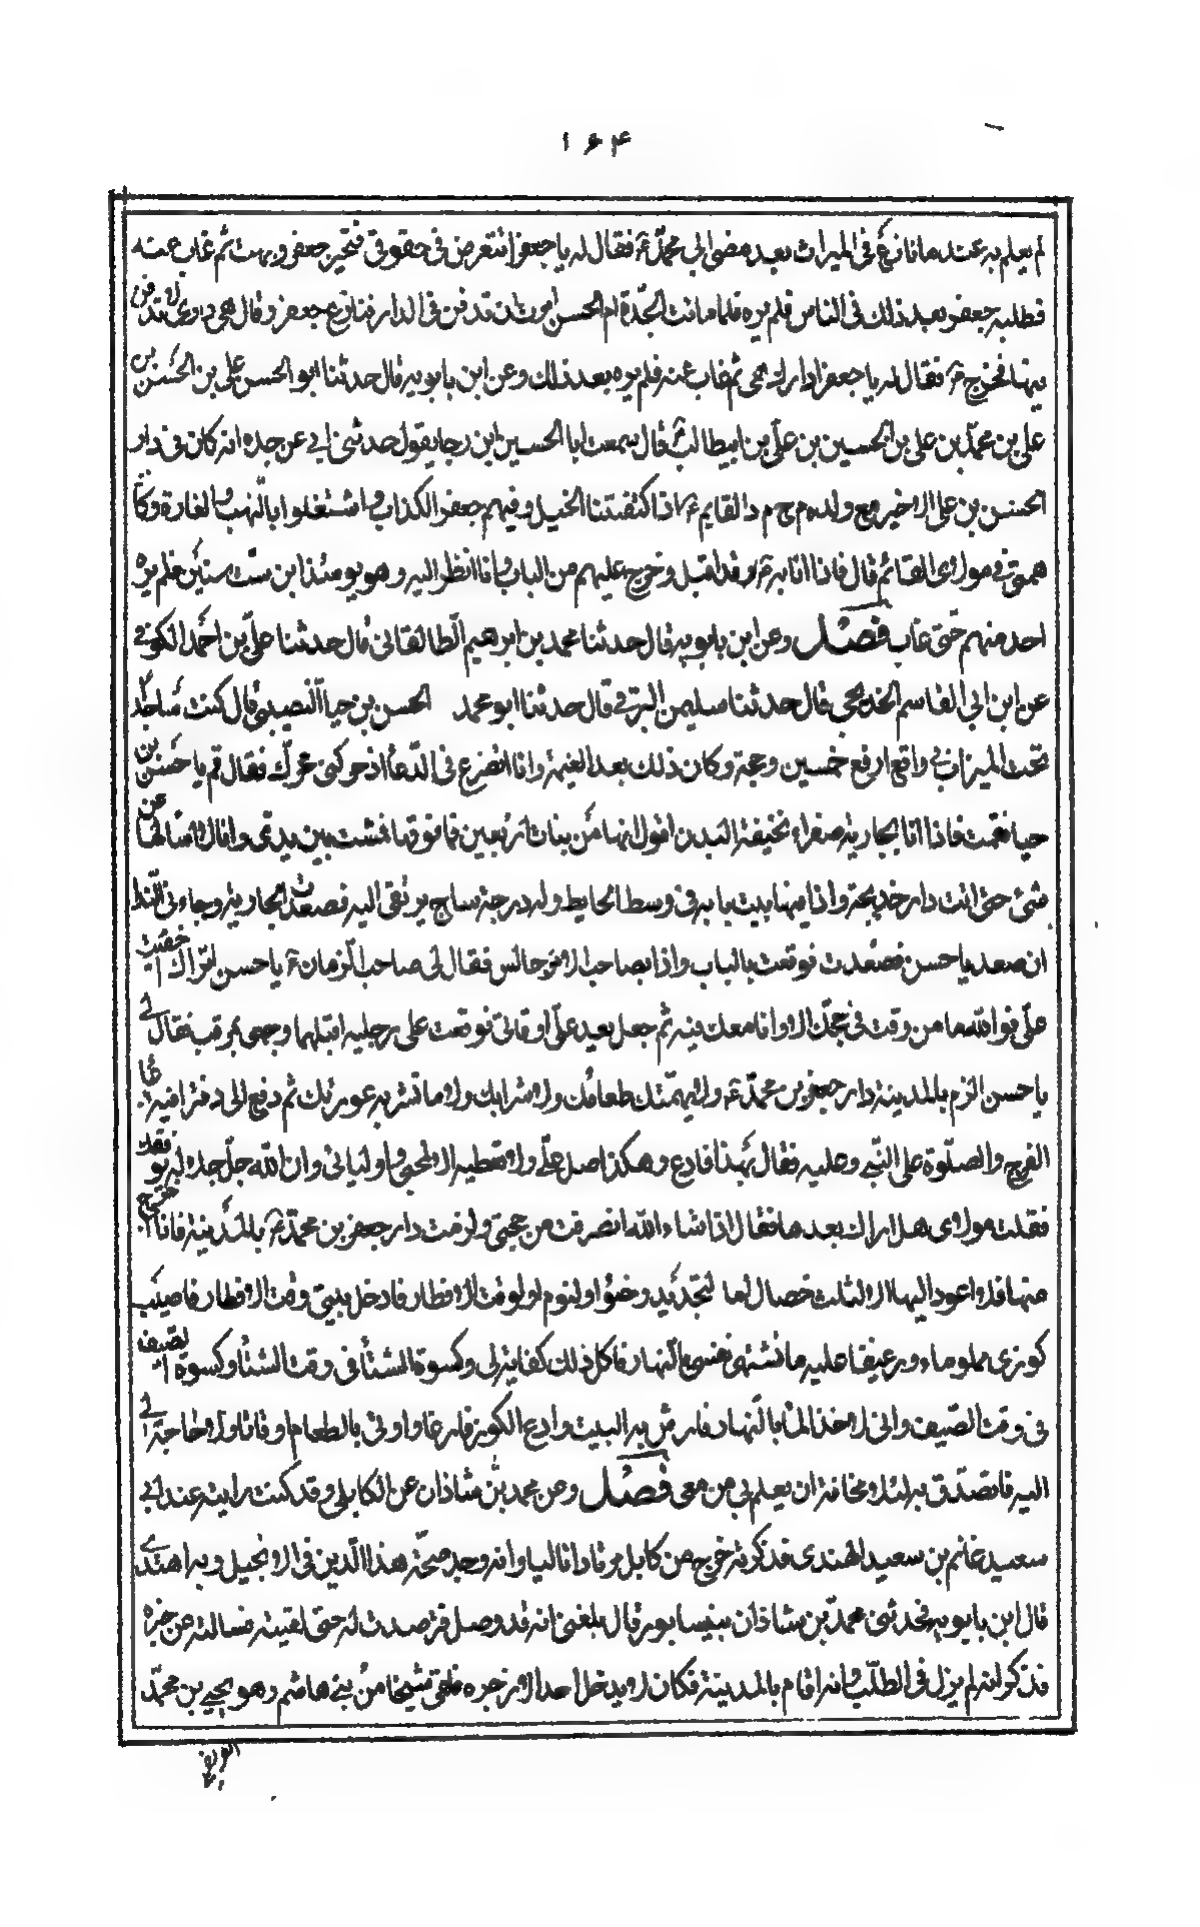 ۱۶۴
لم يعلم به عند ما نازع في الميراث بعد مضى ابى محمد ع فقال له يا جعفر اتتعرض في حقوقى فتحير جعفر و بهت ثم غاب عنه
فطلبه جعفر بعد ذلك في الناس فلم يره فلما ماتت الجدة ام الحسن امرت ان تدفن في الدار فنازع جعفر و قال هى دارى لا تدفن
فيها فخرج ع فقال له يا جعفر ادارك هى ثم غاب عنه فلم يره بعد ذلك و عن ابن بابويه قال حدثنا ابو الحسن على بن الحسن بن
على بن محمد بن على بن الحسين بن على بن ابيطالب قال سمعت ابا الحسين ابن رجا يقول حدثنى ابى عن جده انه كان في دار
الحسن بن على الاخير مع ولده م ح م د القايم ع اذا كثفتنا الخيل و فيهم جعفر الكذاب و اشتغلوا بالنهب و الغارة و كان
همتى في مولاى القائم قال فاذا انا به ع و قد اقبل و خرج عليهم من الباب و انا انظر اليه و هو يومئذ ابن ست سنين فلم يره
احد منهم حتى غاب فصل و عن ابن بابويه قال حدثنا محمد بن ابرهيم الطالقانى قال حدثنا على بن احمد الكوفى
عن ابن ابي القاسم الخديجى قال حدثنا سليمن البرقى قال حدثنا ابو محمد الحسن بن حيا النصيبى قال كنت ساجدا
تحت الميزاب في واقع اربع خمسين و حجة و كان ذلك بعد الغيبة و انا اتضرع في الدعا اذ حركنى محرك فقال قم يا حسن بن
حيا فقمت فاذا انا بجارية صفراء نحيفة البدن اقول انها من بنات اربعين فما فوقها فمشت بين يدى و انا لا اسالها عن
شئ حتى اتت دار خديجة و اذا فيها بيت بابه في وسط الحايط و له درجة ساج يرتقى اليه فصعدت الجارية و جاءنى الندا
ان صعد يا حسن فصعدت فوقعت بالباب و اذا بصاحب الامر جالس فقال لى صاحب الزمان ع يا حسن اتراك خفيت
على فوالله ما من وقت في حجك الا و انا معك فيه ثم جعل يعيد على اوقاتى فوقعت على رجليه اقبلهما وجهى بقرب فقال لى
يا حسن الزم بالمدينة دار جعفر بن محمد ع و لا يهمنك طعامك و لا شرابك و لا ما تستر به عورتك ثم دفع الى دفترا فيه دعا
الفرج و الصلوة على النبى و عليه فقال بهذا فادع و هكذا صل على و لا تعطيه الا لمحبى و اوليائى و ان الله جل جلاله يوفقك
فقلت مولاى هل اراك بعد هذا فقال اذا شاء الله انصرفت من حجتى و لزمت دار جعفر بن محمد ع بالمدينة فانا اخرج
منها فلا اعود اليها الا لثلث خصال لها لتجديد وضؤ او لنوم او لوقت الافطار فادخل بيتى وقت الافطار فاصيب
كوزى مملو ماء و رغيفا عليه ما تشتهى نفسى بالنهار فاكل ذلك كفاية لى و كسوة الشتا في وقت الشتا و كسوة الصيف
في وقت الصيف و انى لاخذ الما بالنهار فارش به البيت و ادع الكوز فارغا و اوتى بالطعام و لا حاجة لى
اليه فاتصدق به لئلا مخافة ان يعلم بى من معى فصل و عن محمد بن شاذان عن الكابلى و قد كنت رايته عند ابى
سعيد غانم بن سعيد الهندى فذكر انه خرج من كابل مرتادا طالبا و انه وجد صحة هذا الدين في الانجيل و به اهتدى
قال ابن بابويه فحدثنى محمد بن شاذان بنيسابور قال بلغنى انه قد وصل فترصدت له حتى لقيته فسالته عن خبره
فذكر انه لم يزل في الطلب و انه اقام بالمدينة فكان لا يذكره لاحد الا زجره فلقى شيخا من بنى هاشم و هو يحيى بن محمد
العريضى